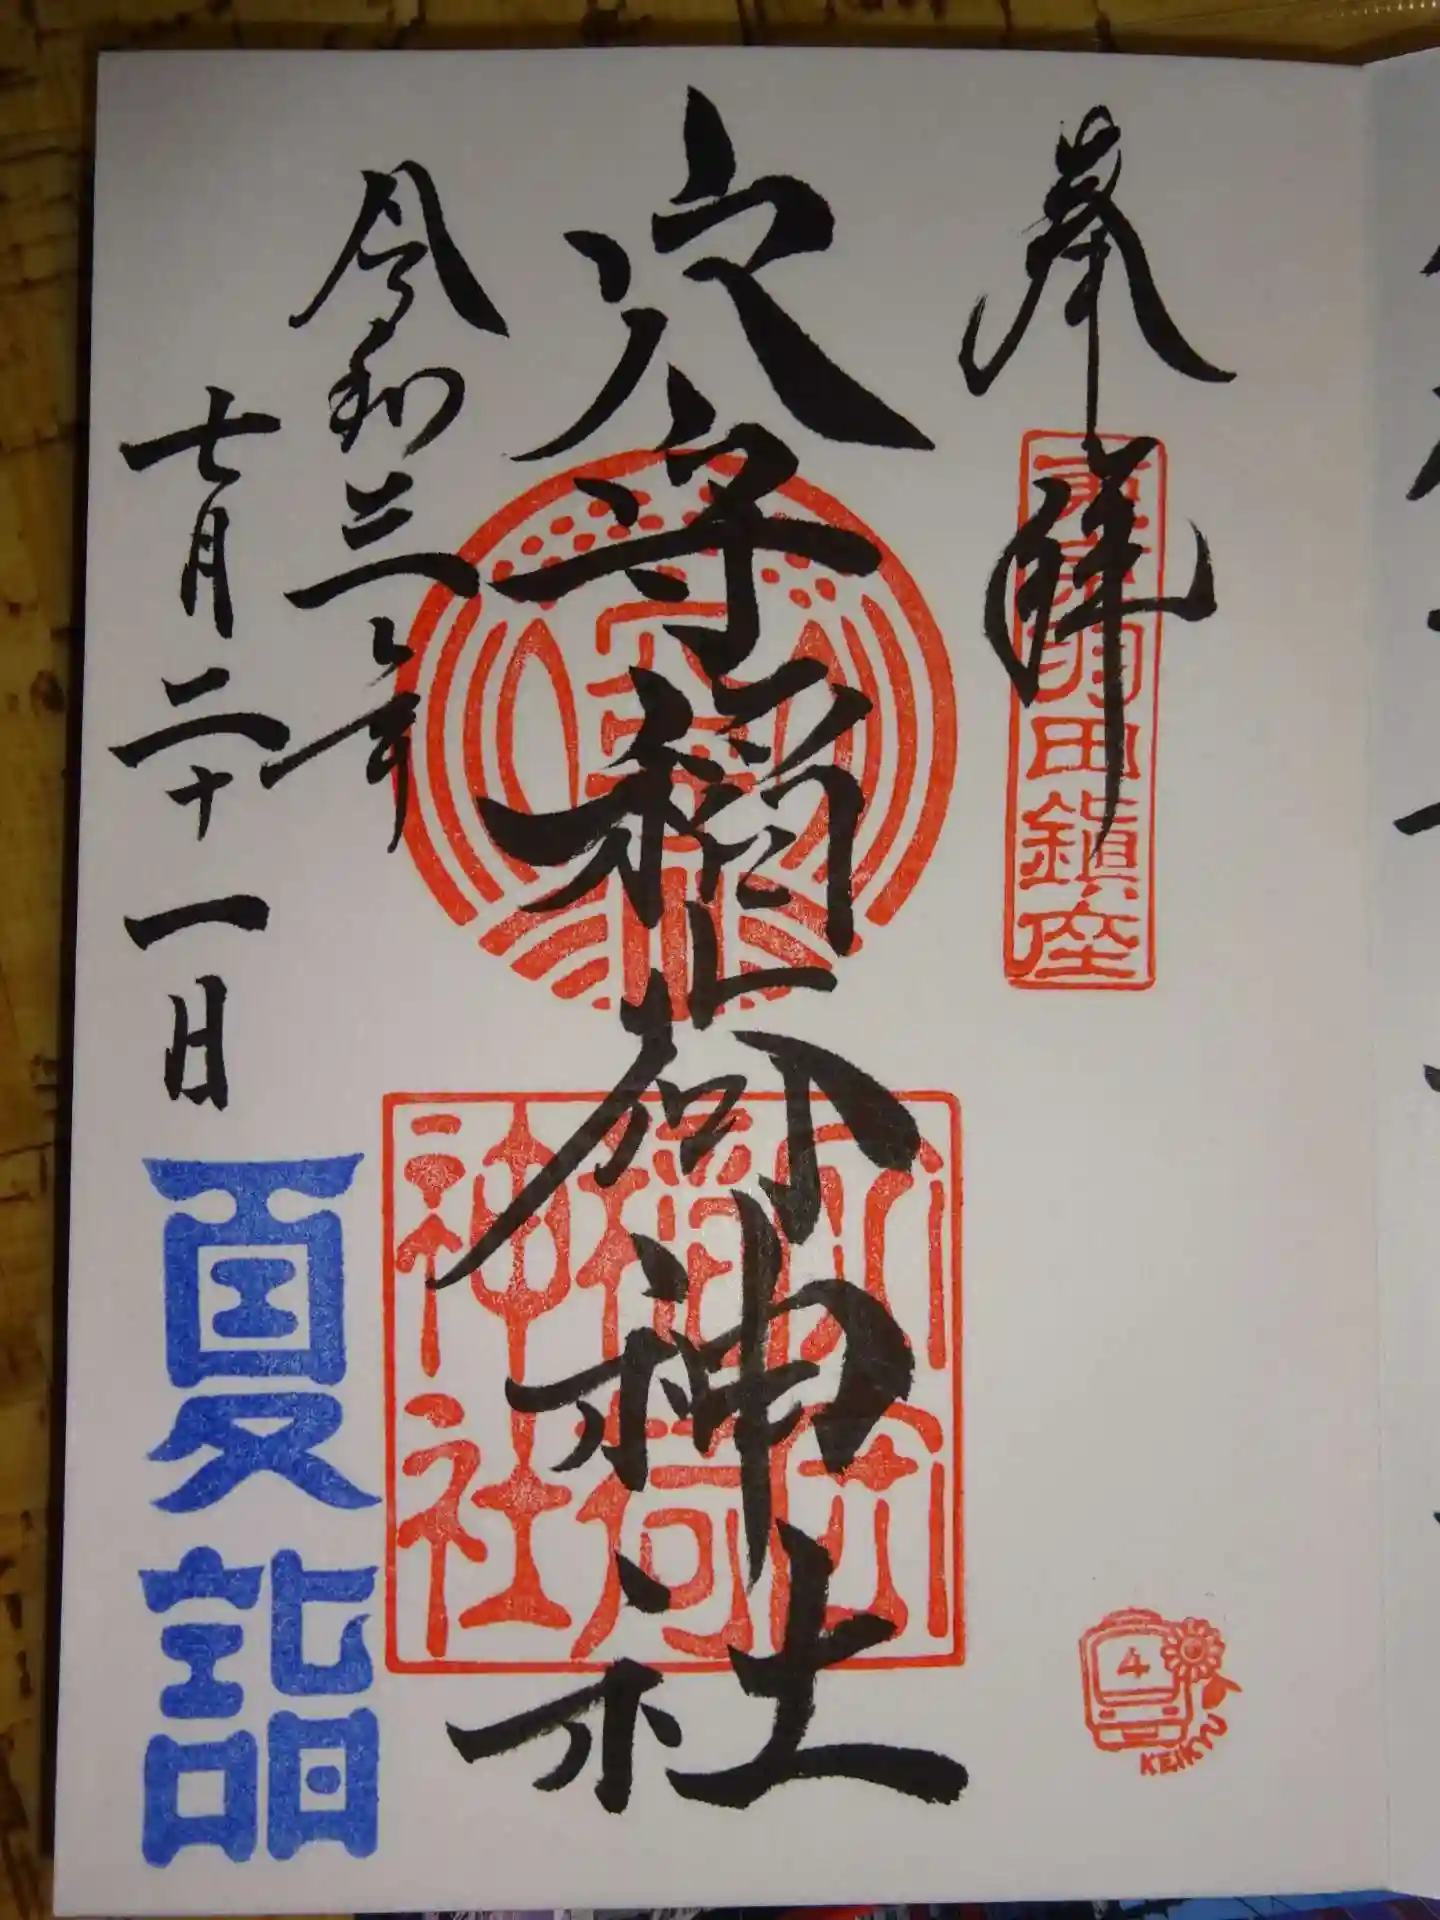 奉拝
東京羽田鎮座
穴守稲荷神社
穴守稲荷神社
令和三年
七月二十一日
夏詣
4
KEIKYU